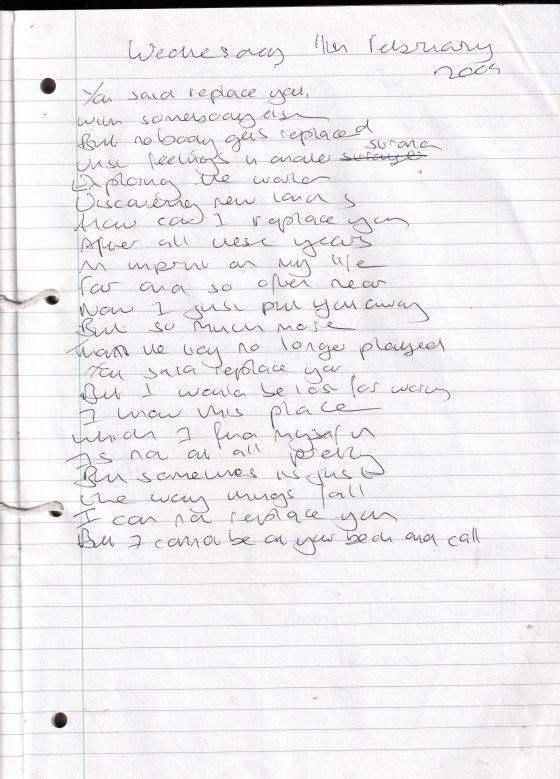 Wednesday 11th February
2009
You said replace you,
with somebody else
But nobody gets replaced
Just feelings in another
Exploring the world
Discovering new lands
How can I replace you
After all these years
An imprint on my life
Far and so often near
Now I just put you away
But so much more
Than the toy no longer played
You said replace you
But I would be lost for words
I know this place
which I find myself in
Is not at all pretty
But sometimes its just
the way things fall
I can not replace you
But I cannot be on your beck and call